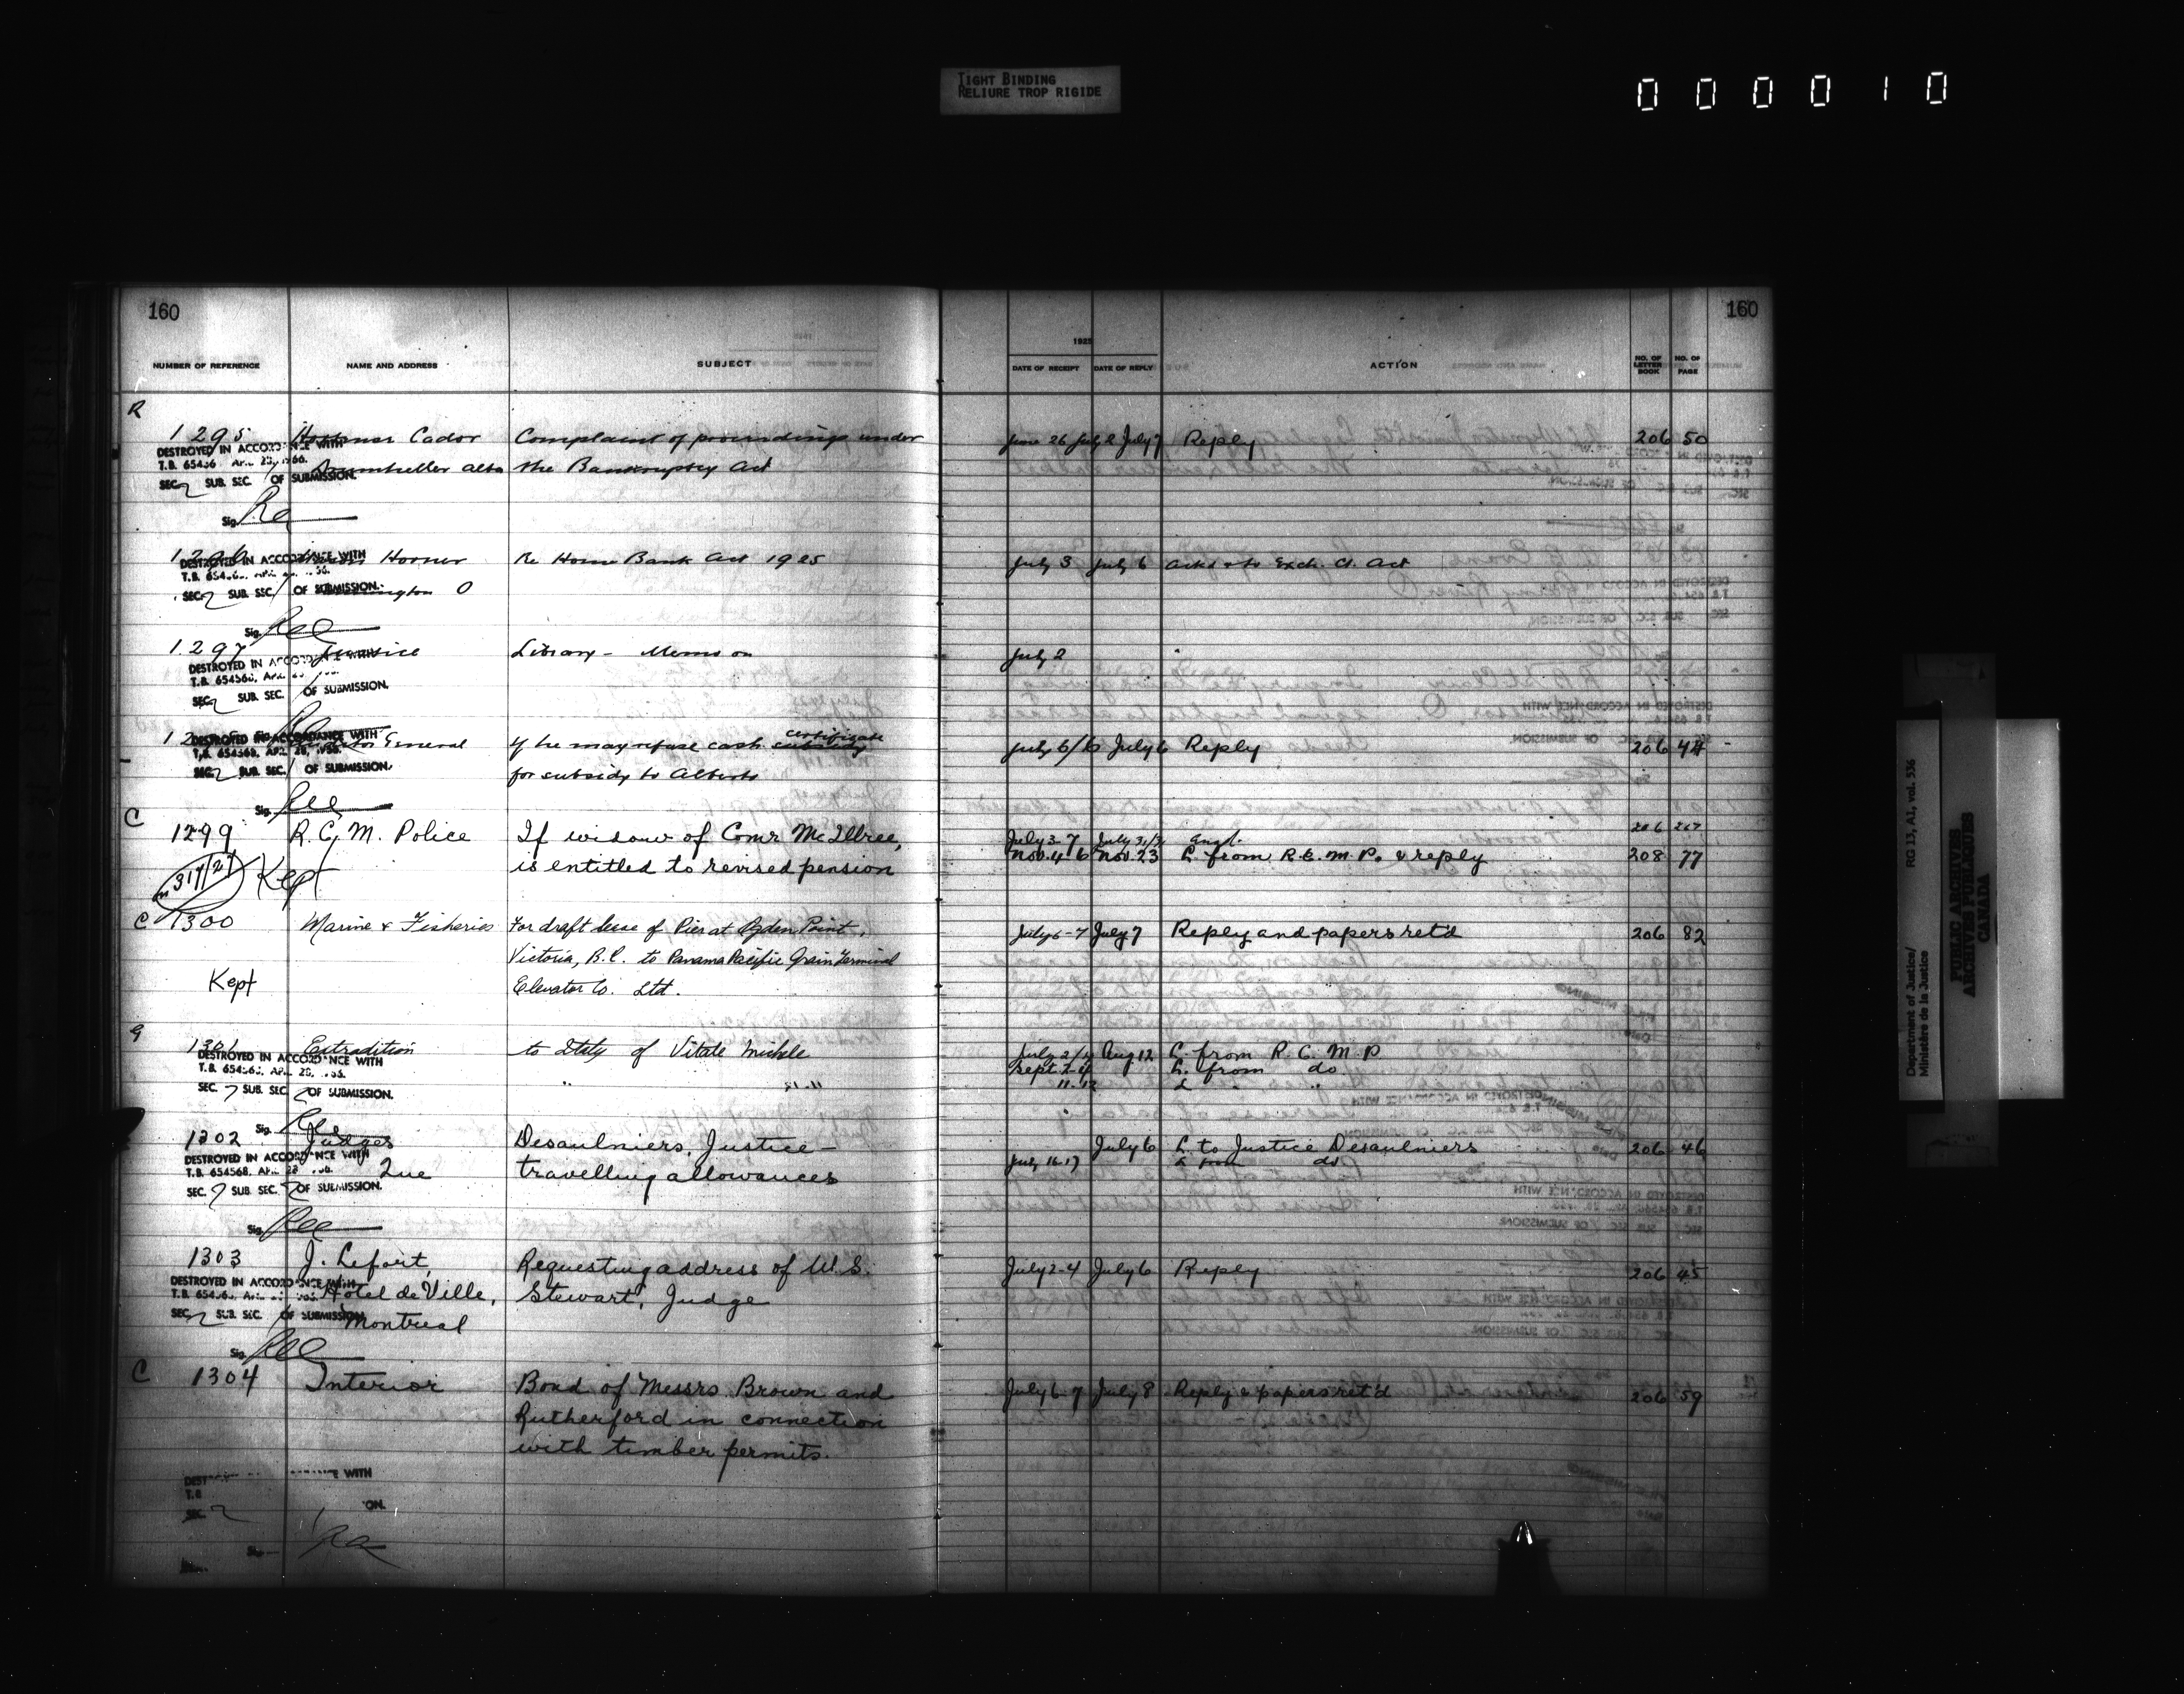 TIGHT BINDING
RELIURE TROP RIGIDE
000010
160
160
NUMBER OF REFERENCE NAME AND ADDRESS SUBJECT
1925
DATE OF RECEIPT DATE OF REPLY ACTION NO. OF LETTER BOOK NO. OF PAGE
R
1295 Cador Complaint of proceedings under June 26 July 2 July 7 Reply 206 50
DESTROYED IN ACCORDANCE WITH
T.B. 65456 APR. 28, 1966.
Drumheller Alta the Bankruptcy Act
SEC. 2 SUB. SEC. / OF SUBMISSION.
Sig.
1296 Horner Re Home Bank Act 1925 July 3 July 6 Ackd & to Exch. Ct. Act
DESTROYED IN ACCORDANCE WITH
SEC. 2 SUB. SEC. / OF SUBMISSION. O
Sig.
1297 Justice Library - Memo on July 2
DESTROYED IN ACCORDANCE WITH
T.B. 654568, APR. 28
SEC. 2 SUB. SEC. / OF SUBMISSION.
General If he may refuse cash subsidy certificate July 6/6 July 6 Reply 206 44
DESTROYED IN ACCORDANCE WITH
T.B. 654568, APR. 28, 1966.
SEC. 2 SUB. SEC. / OF SUBMISSION.
for subsidy to Alberta
Sig.
C
1299 R.C.M. Police If widow of Comr McIllree, July 3-7 July 31/31 206 267
is entitled to revised pension Nov. 4 6 Nov. 23 L. from R.C.M.P. & reply 208 77
317/27 Kept
C 1300 Marine & Fisheries For draft lease of Pier at Ogden Point, July 6-7 July 7 Reply and papers ret'd 206 82
Victoria, B.C. to Panama Pacific Grain Terminal
Kept Elevator Co. Ltd.
G
1301 Extradition to Italy of Vitale Michele July 2/4 Aug 12 L. from R.C.M.P
DESTROYED IN ACCORDANCE WITH
Sept. 2-4 L. from do
11-12 L " "
SEC. 7 SUB. SEC. 2 OF SUBMISSION.
Sig.
1302 Judges Desaulniers, Justice - July 6 L. to Justice Desaulniers 206 46
DESTROYED IN ACCORDANCE WITH
T.B. 654568, APR. 28
Que travelling allowances July 16-17 L from do
SEC. 7 SUB. SEC. 2 OF SUBMISSION.
Sig.
1303 J. Lefort, Requesting address of W.S. July 2-4 July 6 Reply 206 45
DESTROYED IN ACCORDANCE WITH
Hotel de Ville, Stewart, Judge
SEC. 2 SUB. SEC. / OF SUBMISSION.
Montreal
Sig.
C 1304 Interior Bond of Messrs Brown and July 6-7 July 8 Reply & papers ret'd 206 59
Rutherford in connection
with timber permits.
WITH
T.B
SEC. 2 ON.
Sig.
Department of Justice/ RG 13, A1, vol. 536
Ministère de la Justice
PUBLIC ARCHIVES
ARCHIVES PUBLIQUES
CANADA